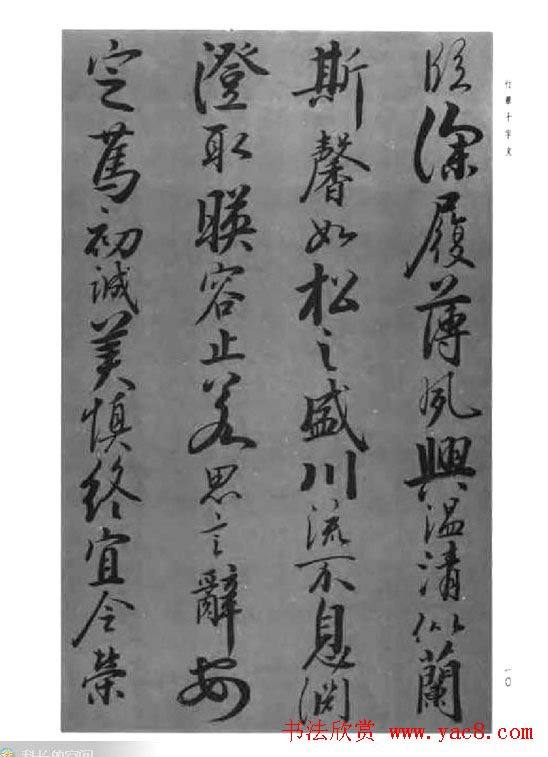 行書千字文
臨深履薄夙興温清似蘭
斯馨如松之盛川流不息渊
澄取暎容止若思言辭安
定篤初誠美慎終宜令榮
一〇
书法欣赏 www.yac8.com
科长的空间